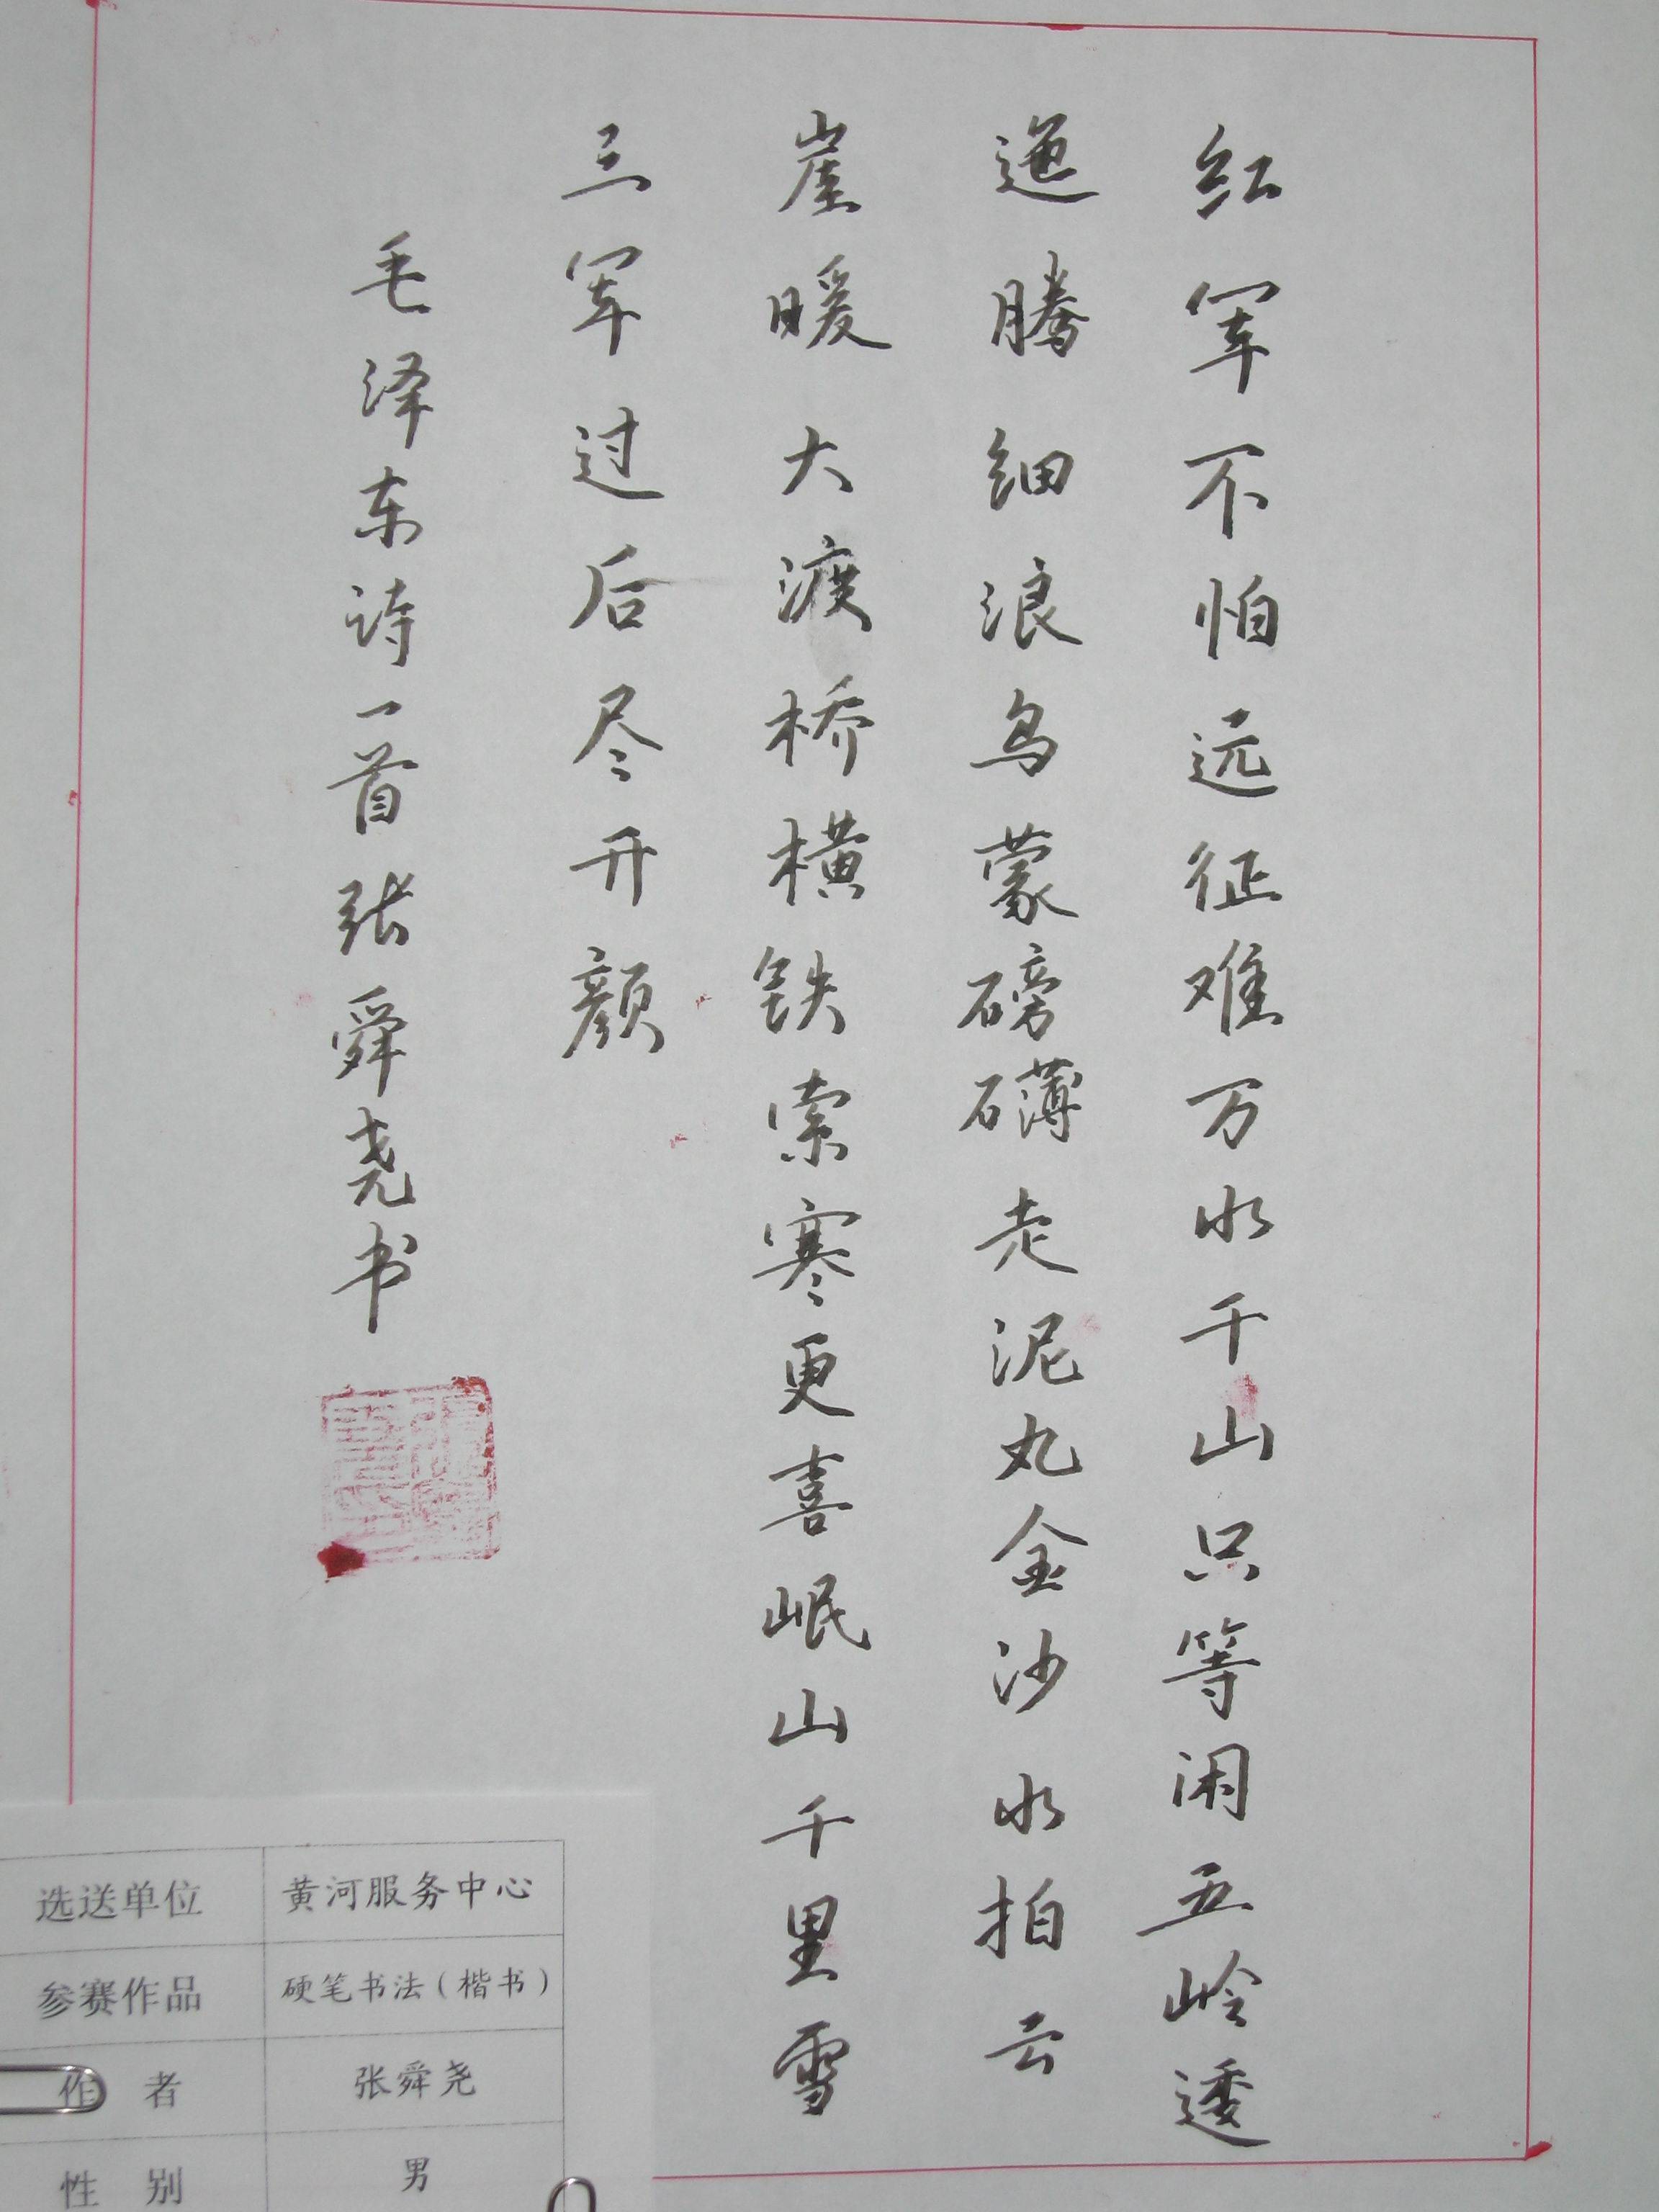 红军不怕远征难万水千山只等闲五岭逶
迤腾细浪乌蒙磅礴走泥丸金沙水拍云
崖暖大渡桥横铁索寒更喜岷山千里雪
三军过后尽开颜
毛泽东诗一首张舜尧书
选送单位 黄河服务中心
参赛作品 硬笔书法（楷书）
作 者 张舜尧
性 别 男